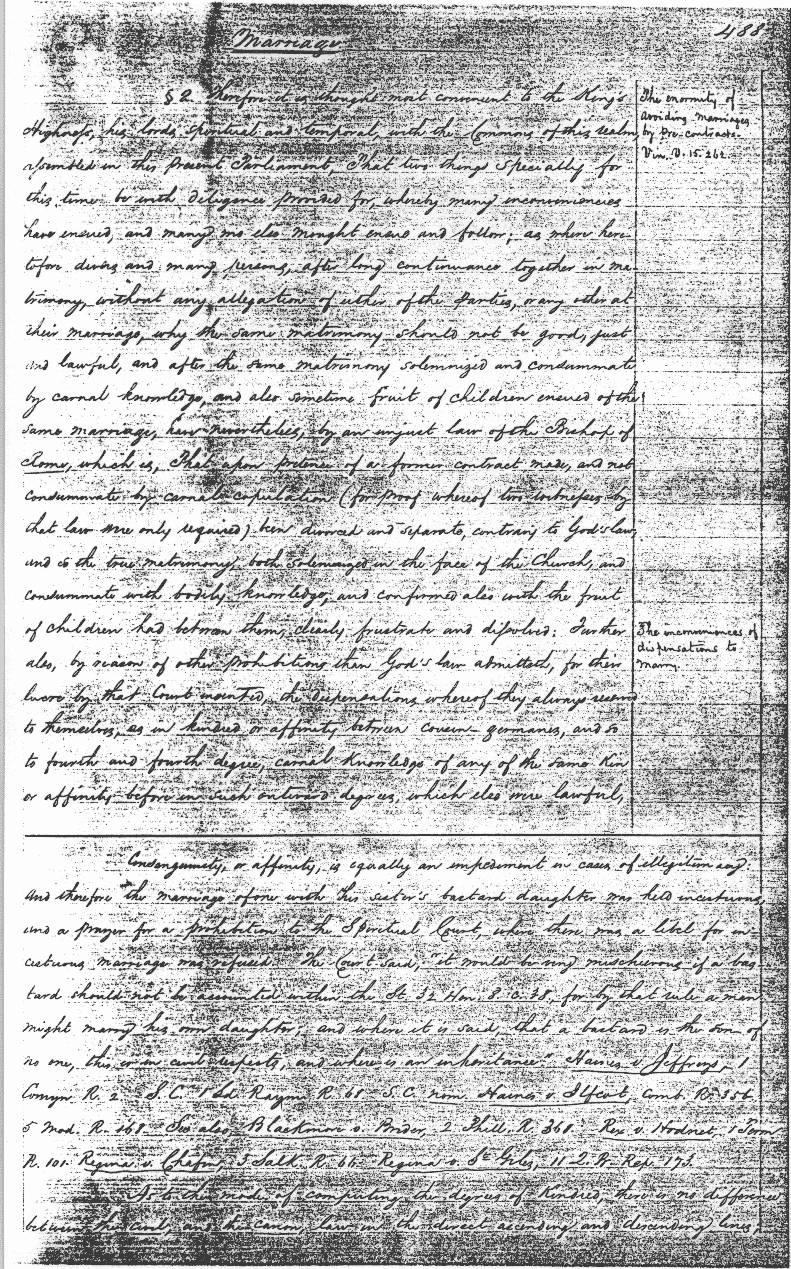 488
Marriage
§ 2. Therefore it is thought most convenient to the King's
Highness, his lords spiritual and temporal, with the Commons of this realm,
assembled in this present Parliament, That two things specially for
this time be with diligence provided for, whereby many inconveniences
have ensued, and many mo else mought ensue and follow; as where here-
tofore divers and many persons, after long continuance together in ma-
trimony, without any allegation of either of the parties, or any other at
their marriage, why the same matrimony should not be good, just
and lawful, and after the same matrimony solemnized and consummate
by carnal knowledge, and also sometime fruit of children ensued of the
same marriage, have nevertheless, by an unjust law of the Bishop of
Rome, which is, That upon pretence of a former contract made, and not
consummate by carnal copulation (for proof whereof two witnesses by
that law were only required) been divorced and separate, contrary to God's law,
and so the true matrimony, both solemnized in the face of the Church, and
consummate with bodily knowledge, and confirmed also with the fruit
of children had between them, clearly frustrate and dissolved: Further
also, by reason of other prohibitions than God's law admitteth, for their
lucre by that Court invented, the dispensations whereof they always reserved
to themselves, as in kindred or affinity between cousin-germanes, and so
to fourth and fourth degree, carnal knowledge of any of the same kin
or affinity before in such outward degrees, which else were lawful,
The enormity of
avoiding marriages
by Pre-contracts.
Vin. V. 15. 262.
The inconveniences of
dispensations to
marry.
Consanguinity, or affinity, is equally an impediment in cases of illegitimacy.
And therefore the marriage of one with his sister's bastard daughter was held incestuous,
and a prayer for a prohibition to the Spiritual Court, where there was a libel for in-
cestuous marriage was refused. The Court said, "it would be very mischievous if a bas-
tard should not be accounted within the St. 32 Hen. 8. c. 38, for by that rule a man
might marry his own daughter; and where it is said, that a bastard is the son of
no one, this is in civil respects, and where is an inheritance" Haines v. Jeffreys, 1
Comyn R. 2 S.C. 1 Ld. Raym. R. 68. S.C. nom. Haines v. Jefcot, Comb. R. 356
5 Mod. R. 168. See also, Blackmore v. Brider, 2 Phill. R. 361. Rex v. Hodnet, 1 Term
R. 101. Regina v. Chafin, 3 Salk. R. 66. Regina v. St. Giles, 11 Q. B. Rep. 173.
As to the mode of computing the degrees of kindred, there is no difference
between the civil, and the canon, law in the direct ascending and descending lines;